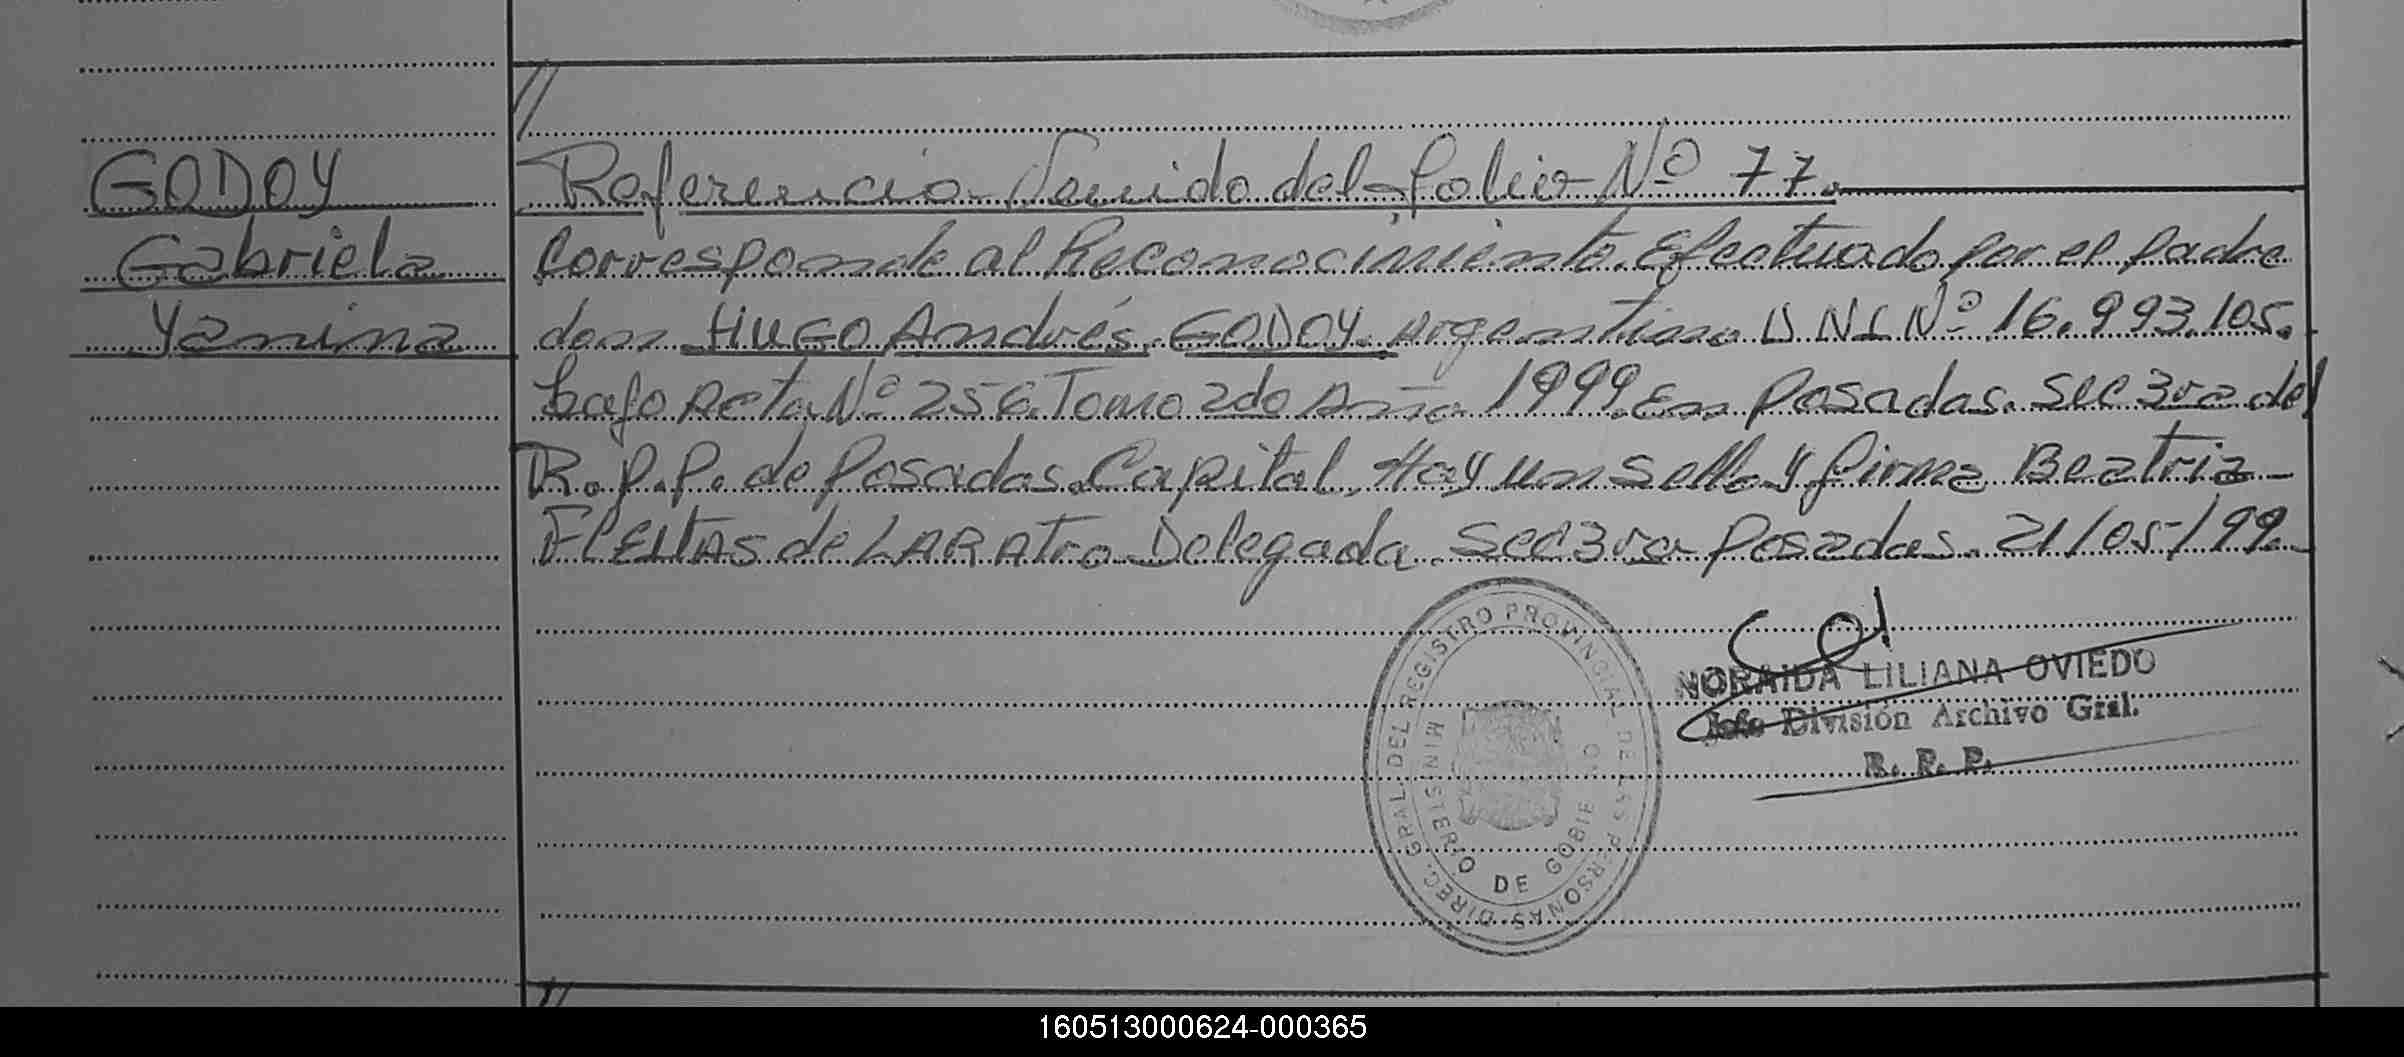 GODOY
Gabriela
Yanina
Referencia Venida del folio Nº 77.
Corresponde al Reconocimiento Efectuado por el padre
don HUGO Andrés GODOY. Argentino DNI Nº 16.993.105.
bajo Acta Nº 256. Tomo 2do Año 1999. En Posadas. Sec 3ra del
R.P.P. de Posadas. Capital. Hay un sello y firma Beatriz
FLEITAS de LARATRO Delegada. Sec 3ra Posadas. 21/05/99.
DIREC. GRAL. DEL REGISTRO PROVINCIAL DE LAS PERSONAS
MINISTERIO DE GOBIE NO
NORAIDA LILIANA OVIEDO
Jefe División Archivo Gral.
R. P. P.
160513000624-000365